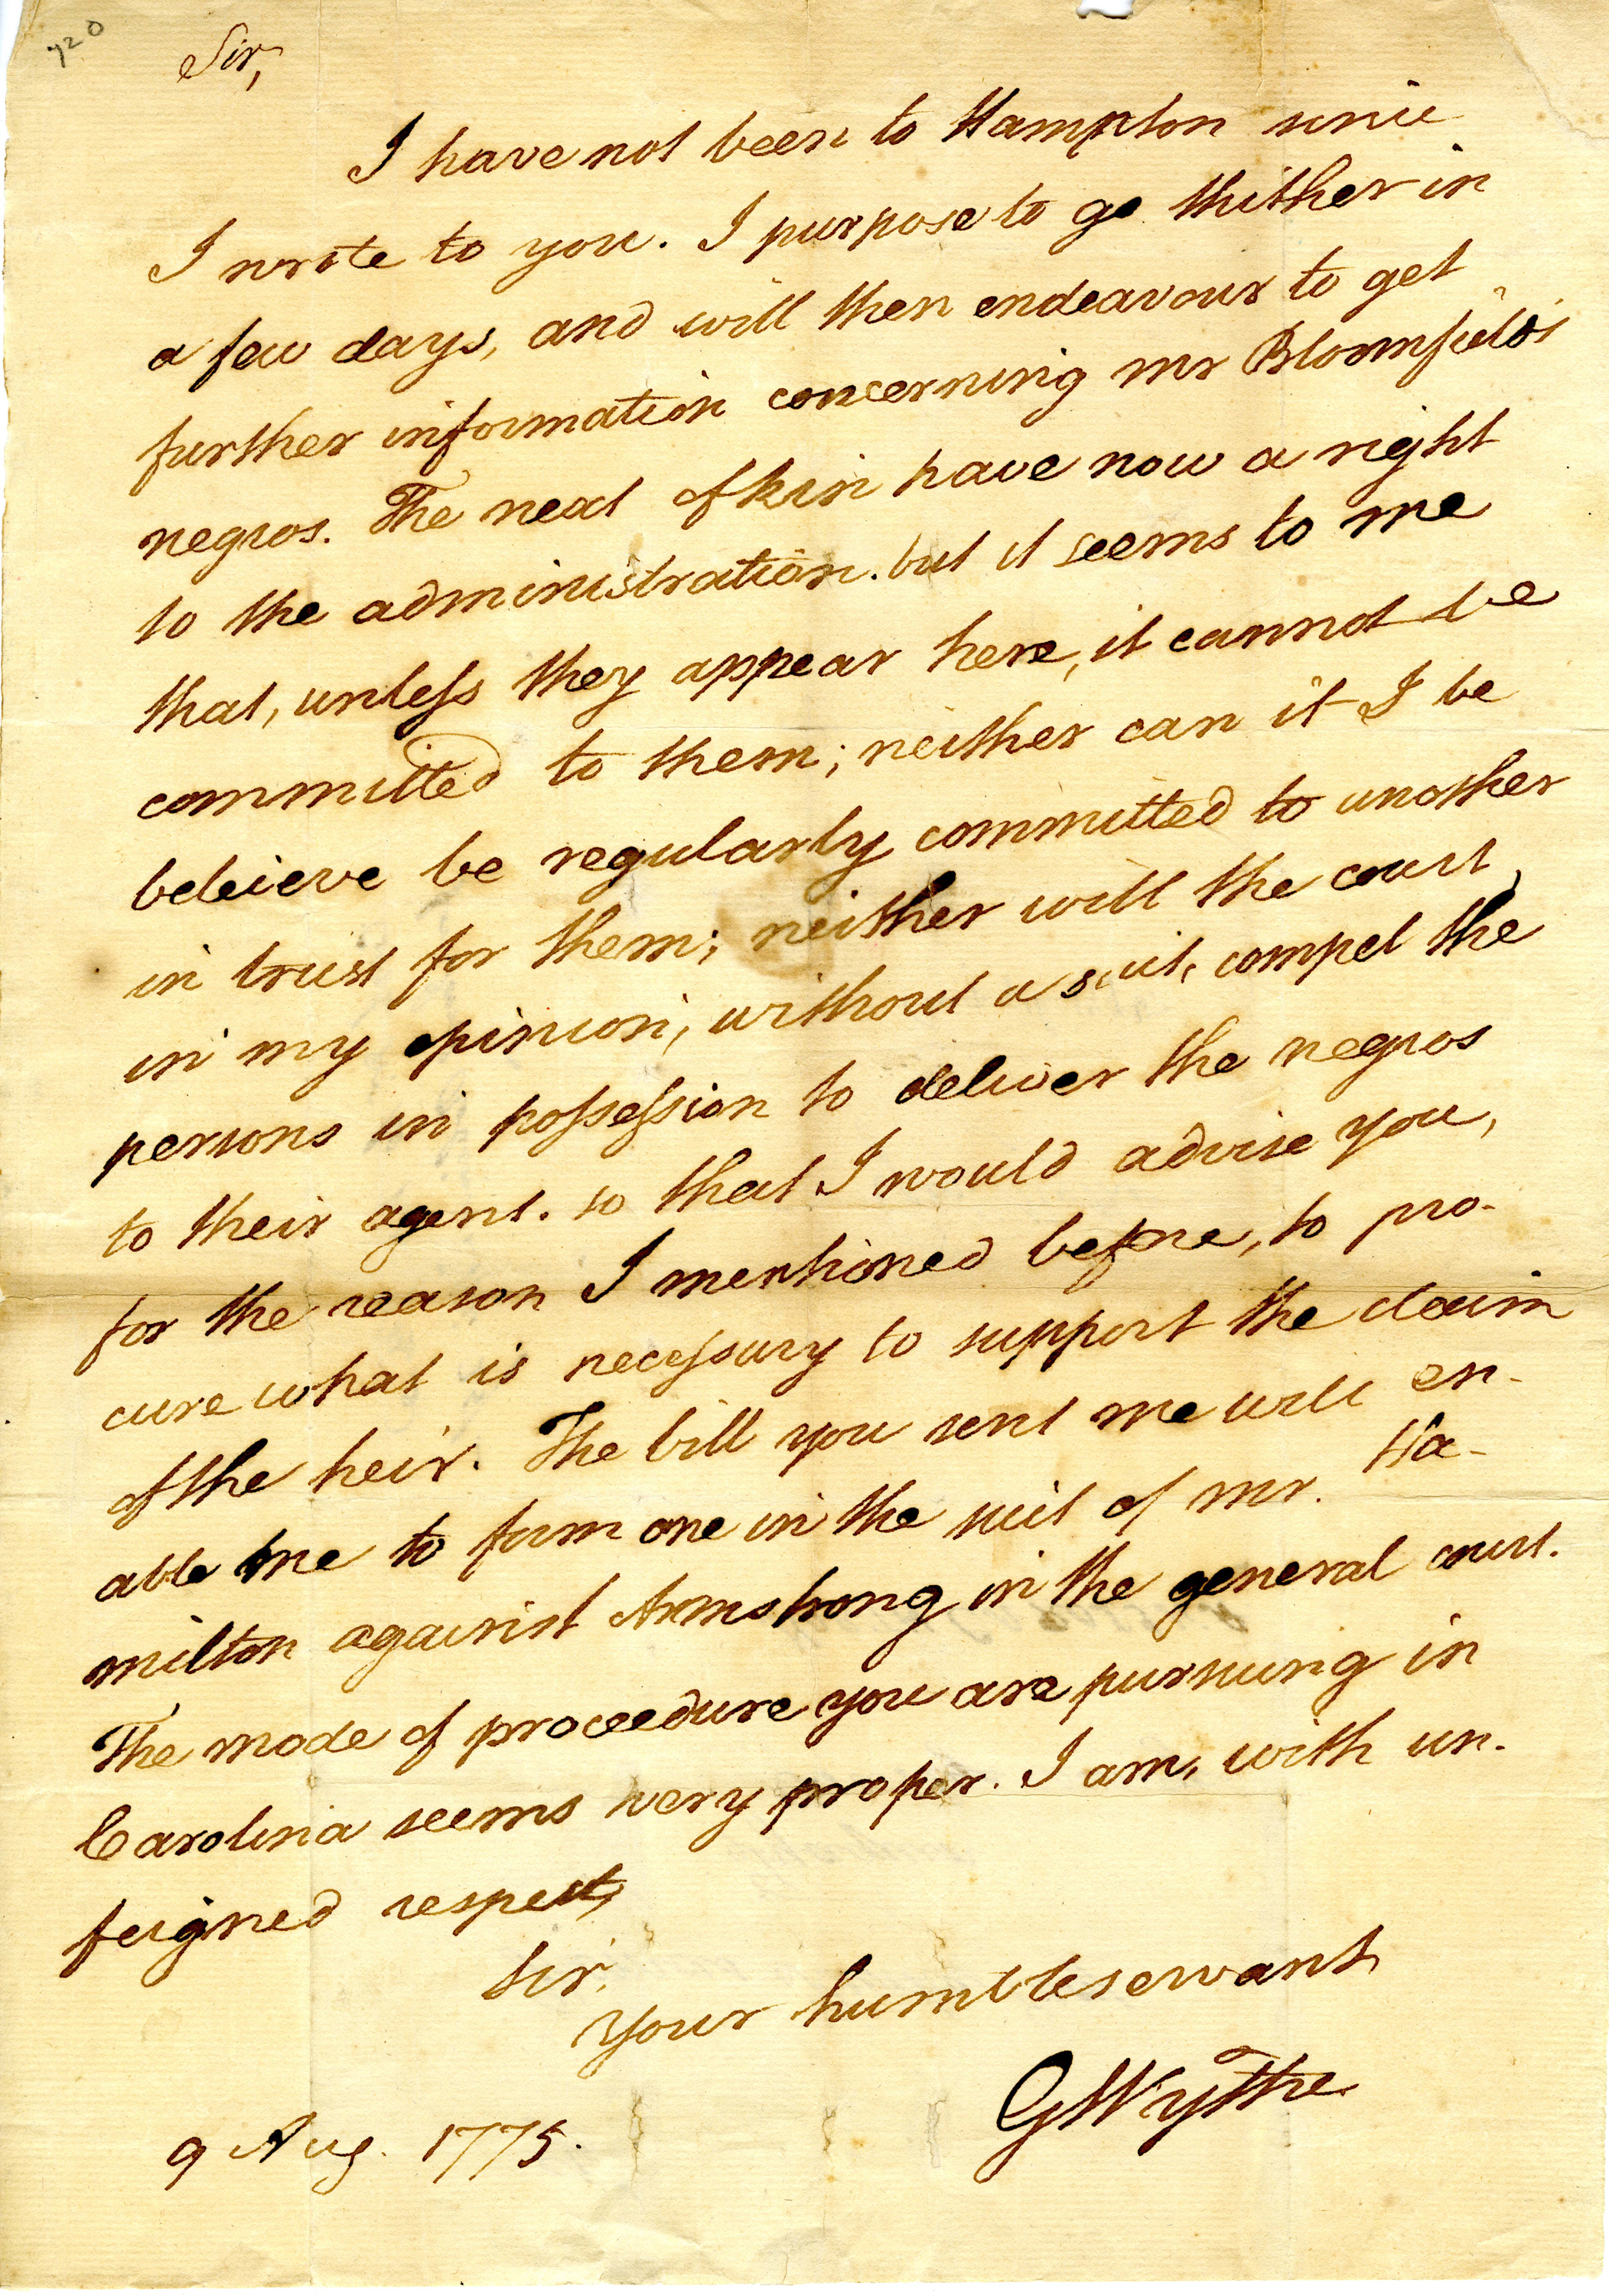 720
Sir,
I have not been to Hampton since
I wrote to you. I purpose to go thither in
a few days, and will then endeavour to get
further information concerning mr Bloomfield's
negros. The next of kin have now a right
to the administration. but it seems to me
that, unless they appear here, it cannot be
committed to them; neither can it I be
beleieve be regularly committed to another
in trust for them; neither will the court,
in my opinion, without a suit, compel the
persons in possession to deliver the negros
to their agent. so that I would advise you,
for the reason I mentioned before, to pro-
cure what is necessary to support the claim
of the heir. The bill you sent me will en-
able me to form one in the suit of mr. Ha-
milton against Armstrong in the general court.
The mode of proceedure you are pursuing in
Carolina seems very proper. I am, with un-
feigned respect,
Sir,
Your humble servant,
GWythe
9 Aug. 1775.